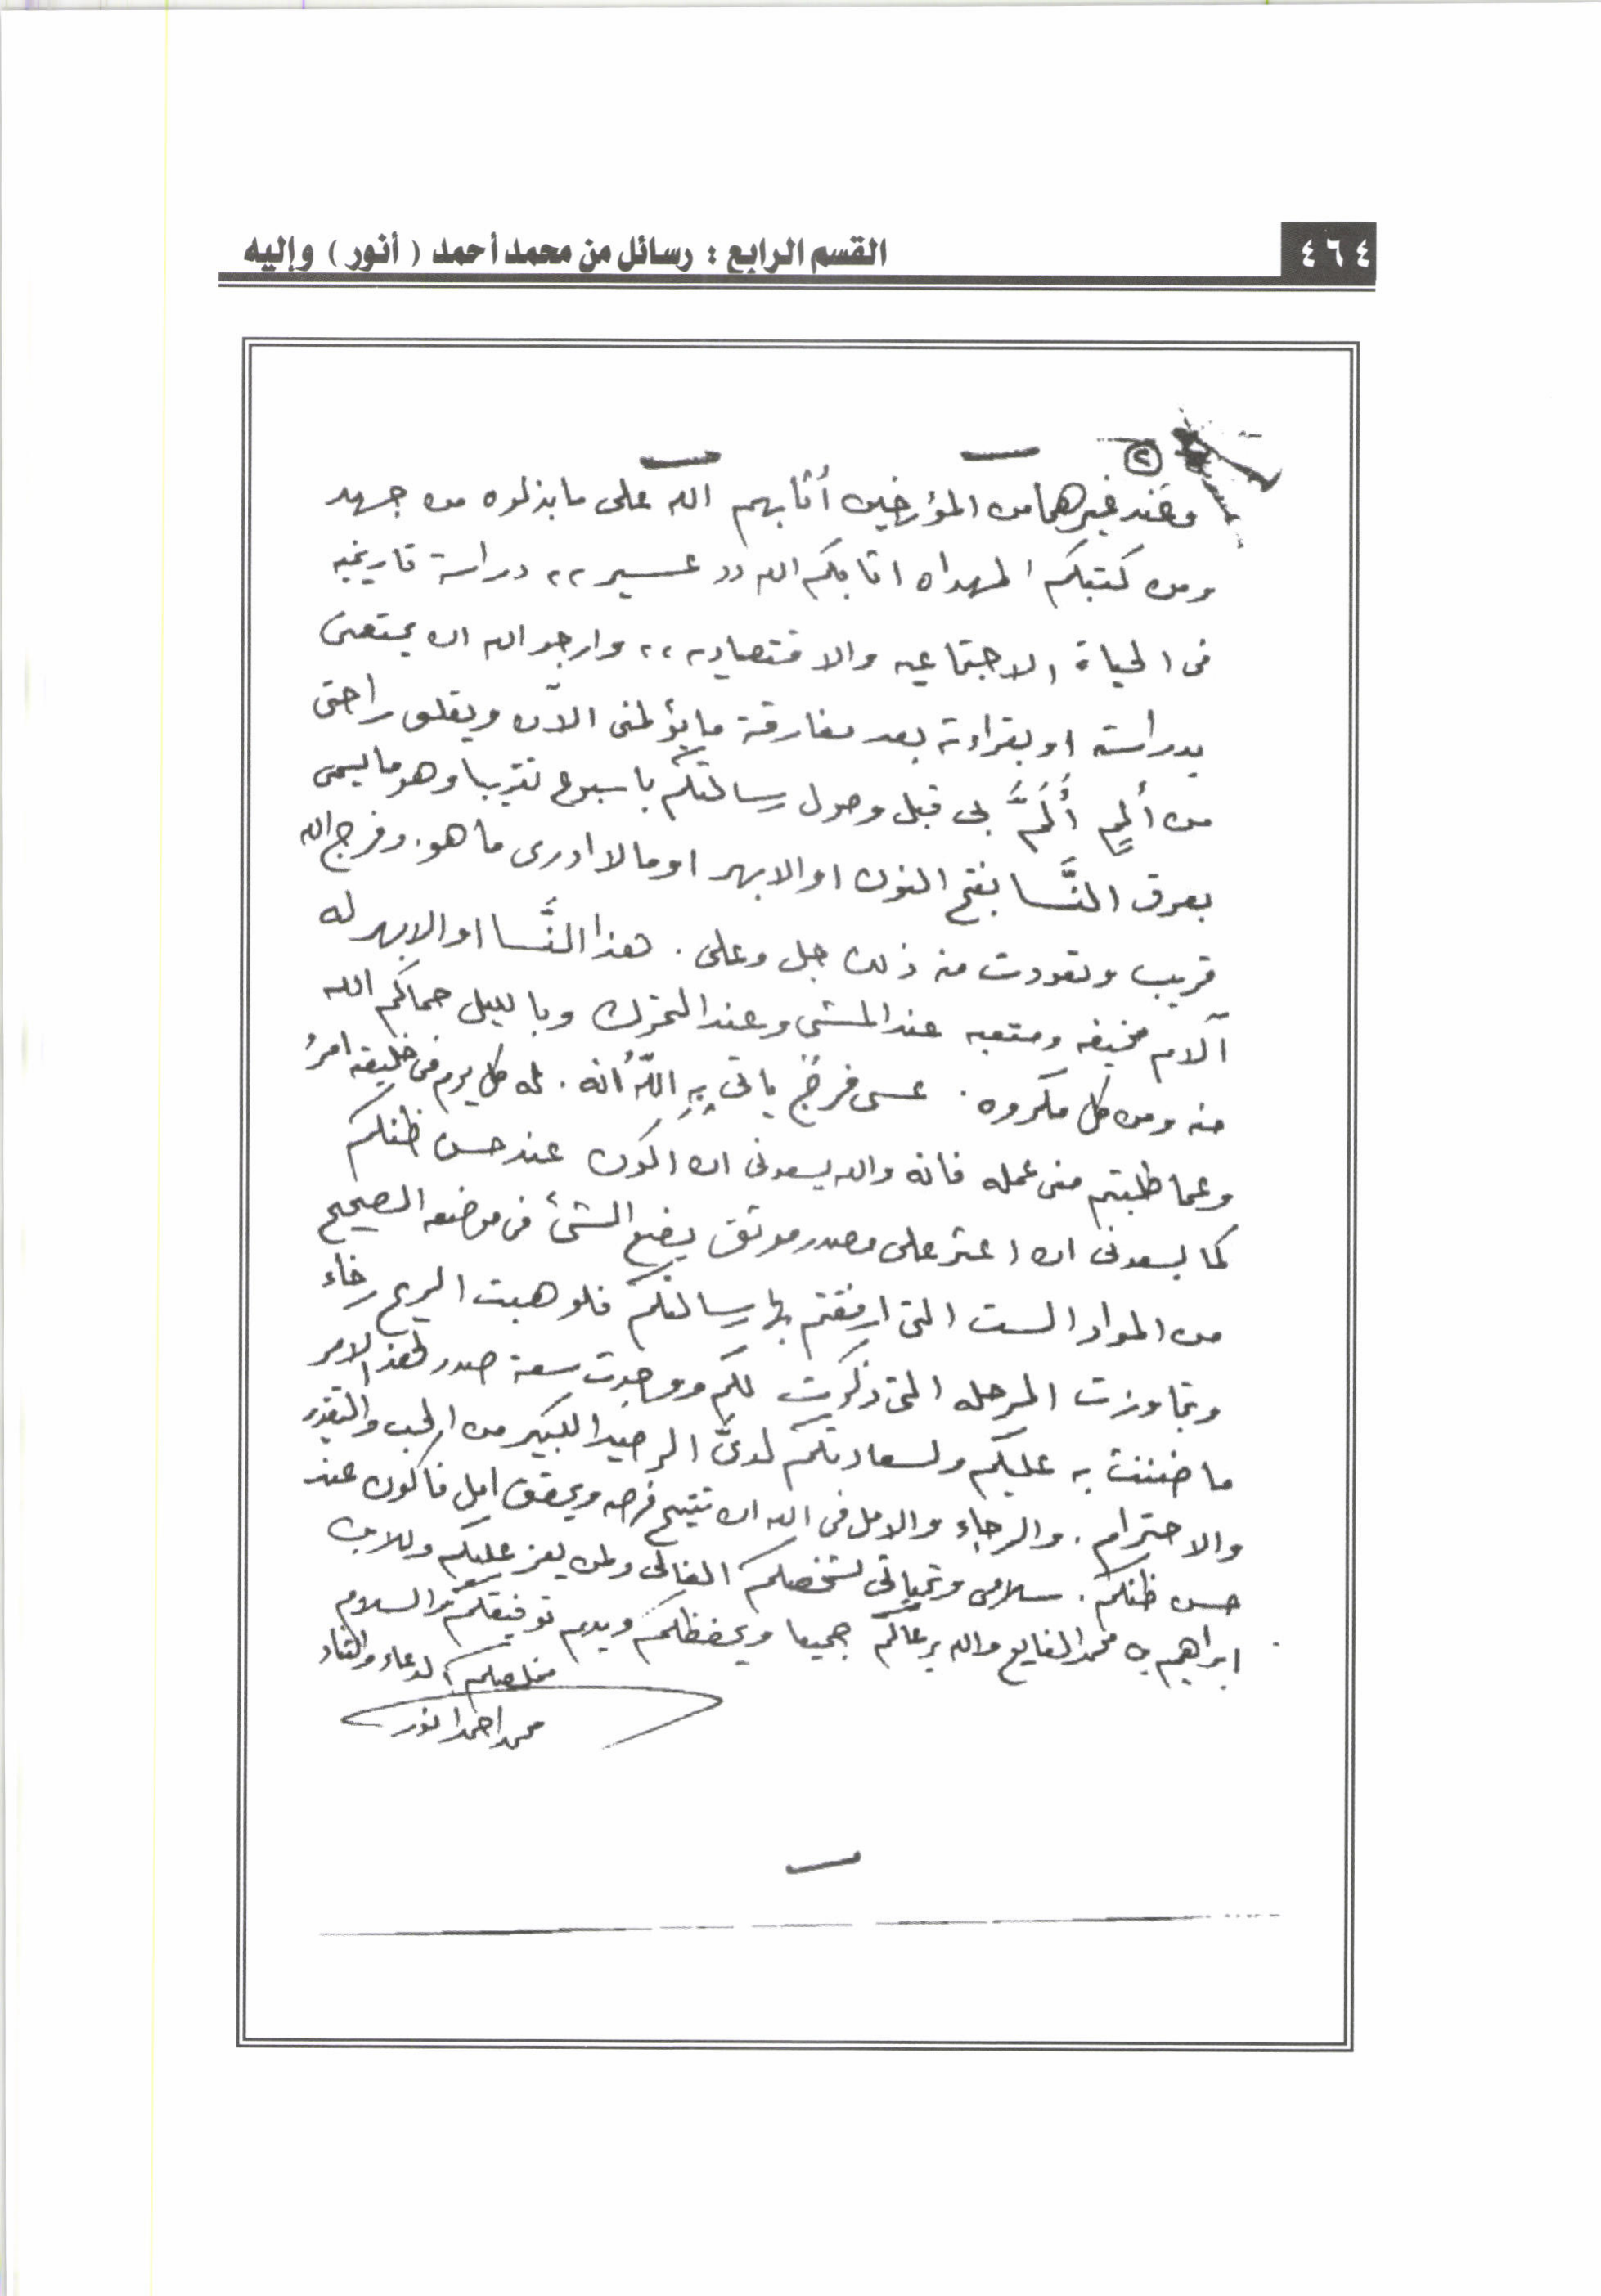 ٤٦٤
القسم الرابع : رسائل من محمد أحمد ( أنور ) وإليه
٢
وعند غيرهما من المؤرخين أثابهم الله على ما بذلوه من جهد
ومن كتبكم المهداه اثابكم الله ,, عسير ,, دراسة تاريخيه
فى الحياة الاجتماعيه والاقتصاديه ,, وارجو الله ان يمتعنى
بدراسته او بقراءته بعد مفارقة ما يؤلمنى الآن ويقلق راحتى
من ألمٍ أَلَمَّ بى قبل وصول رسالتكم باسبوع تقريبا وهو ما يسمى
بعرق النَّسا بفتح النون او الابهر او ما لا ادرى ما هو. وفرج الله
قريب وتعودت منه ذلك جل وعلى . هذا النَّسا او الابهر له
آلام مخيفه ومتعبه عند المشى وعند التحرك وبالليل حماكم الله
منه ومن كل مكروه . عسى فرجٌ ياتى بِهِ اللّهُ انه . له كل يوم فى خليقته امرُ
وعما طلبتم منى عمله فانه والله يسعدنى ان اكون عند حسن ظنكم
كما يسعدنى ان اعثر على مصدر موثق يضع الشئ فى موضعه الصحيح
من المواد الست التى ارفقتم بها رسالتكم فلو هبت الريح رخاء
وتجاوزت المرحله التى ذكرت لكم ووجدت سعة صدر لهذا الامر
ما ضننت به عليكم ولسعادتكم لدىّ الرصيد الكبير من الحب والتقدير
والاحترام . والرجاء والامل فى الله ان تتيح فرصه ويحقق امل فاكون عند
حسن ظنكم . سلامى وتحياتى لشخصكم الغالى ولمن يعز عليكم وللابن
ابراهيم بن محمد الفايع والله يرعاكم جميعا ويحفظكم ويديم توفيقكم والسلام
مخلصكم لدعاء والثناء
محمد احمد انور